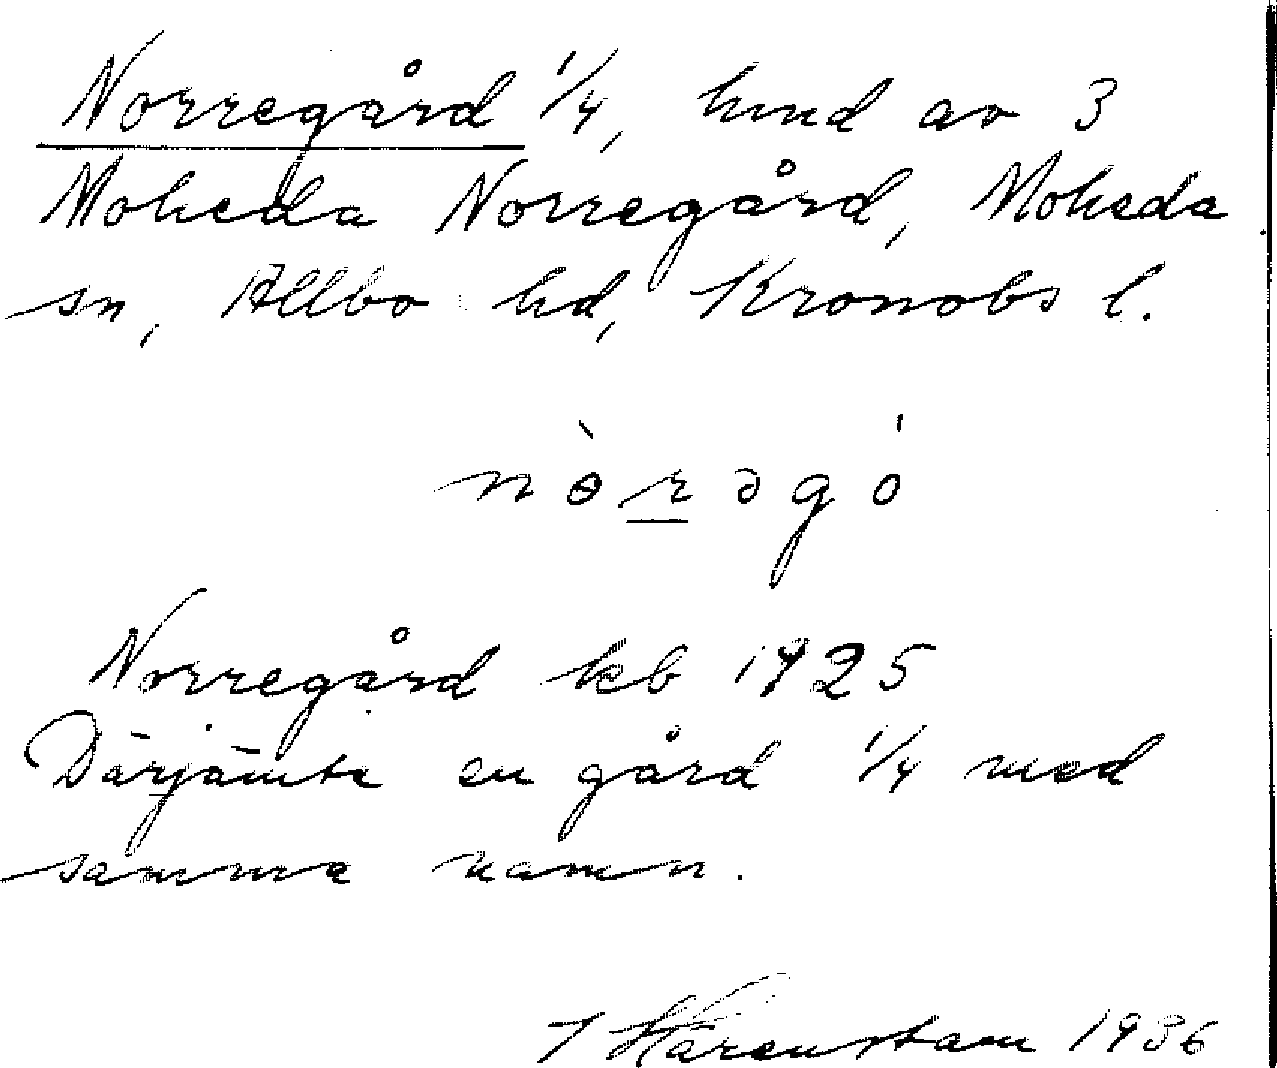 Norregård 1/4, hmd av 3
Moheda Norregård, Moheda
sn, Allbo hd, Kronobs l.
nɵ̀rəgó
Norregård kb 1925
Därjämte en gård 1/4 med
samma namn.
Härenstam 1936